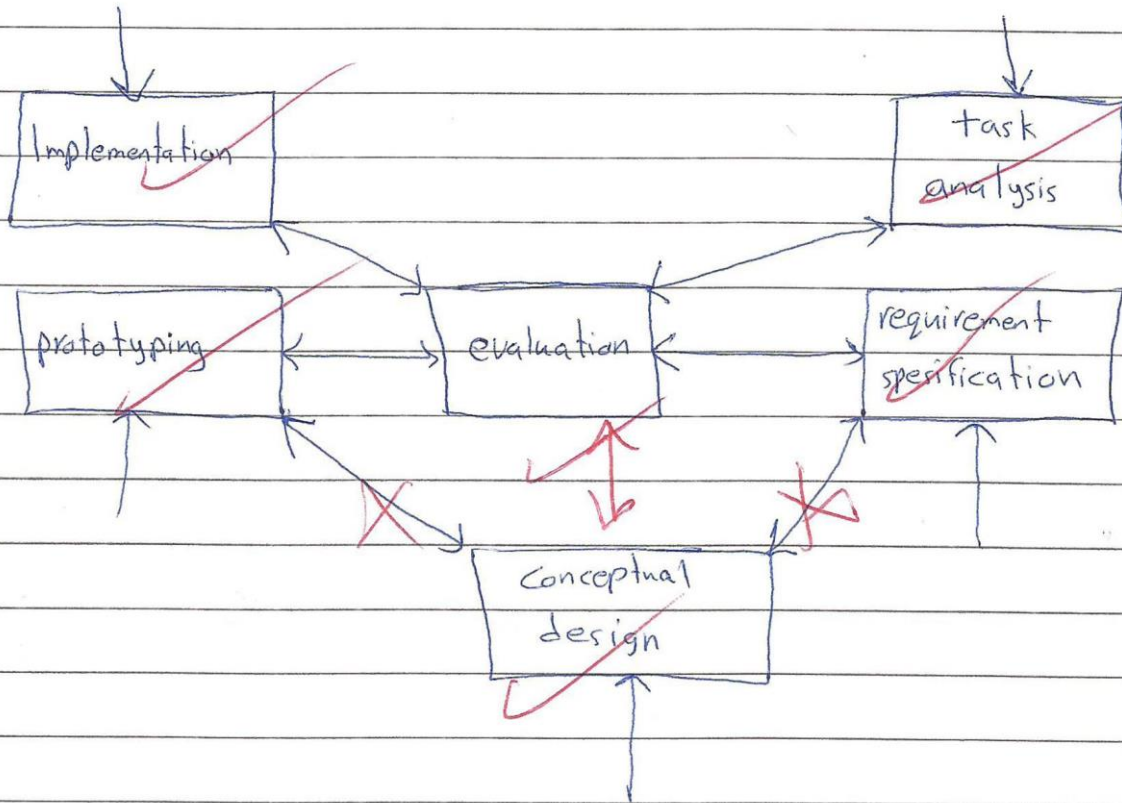 Implementation
task
analysis
prototyping
evaluation
requirement
spesification
conceptual
design